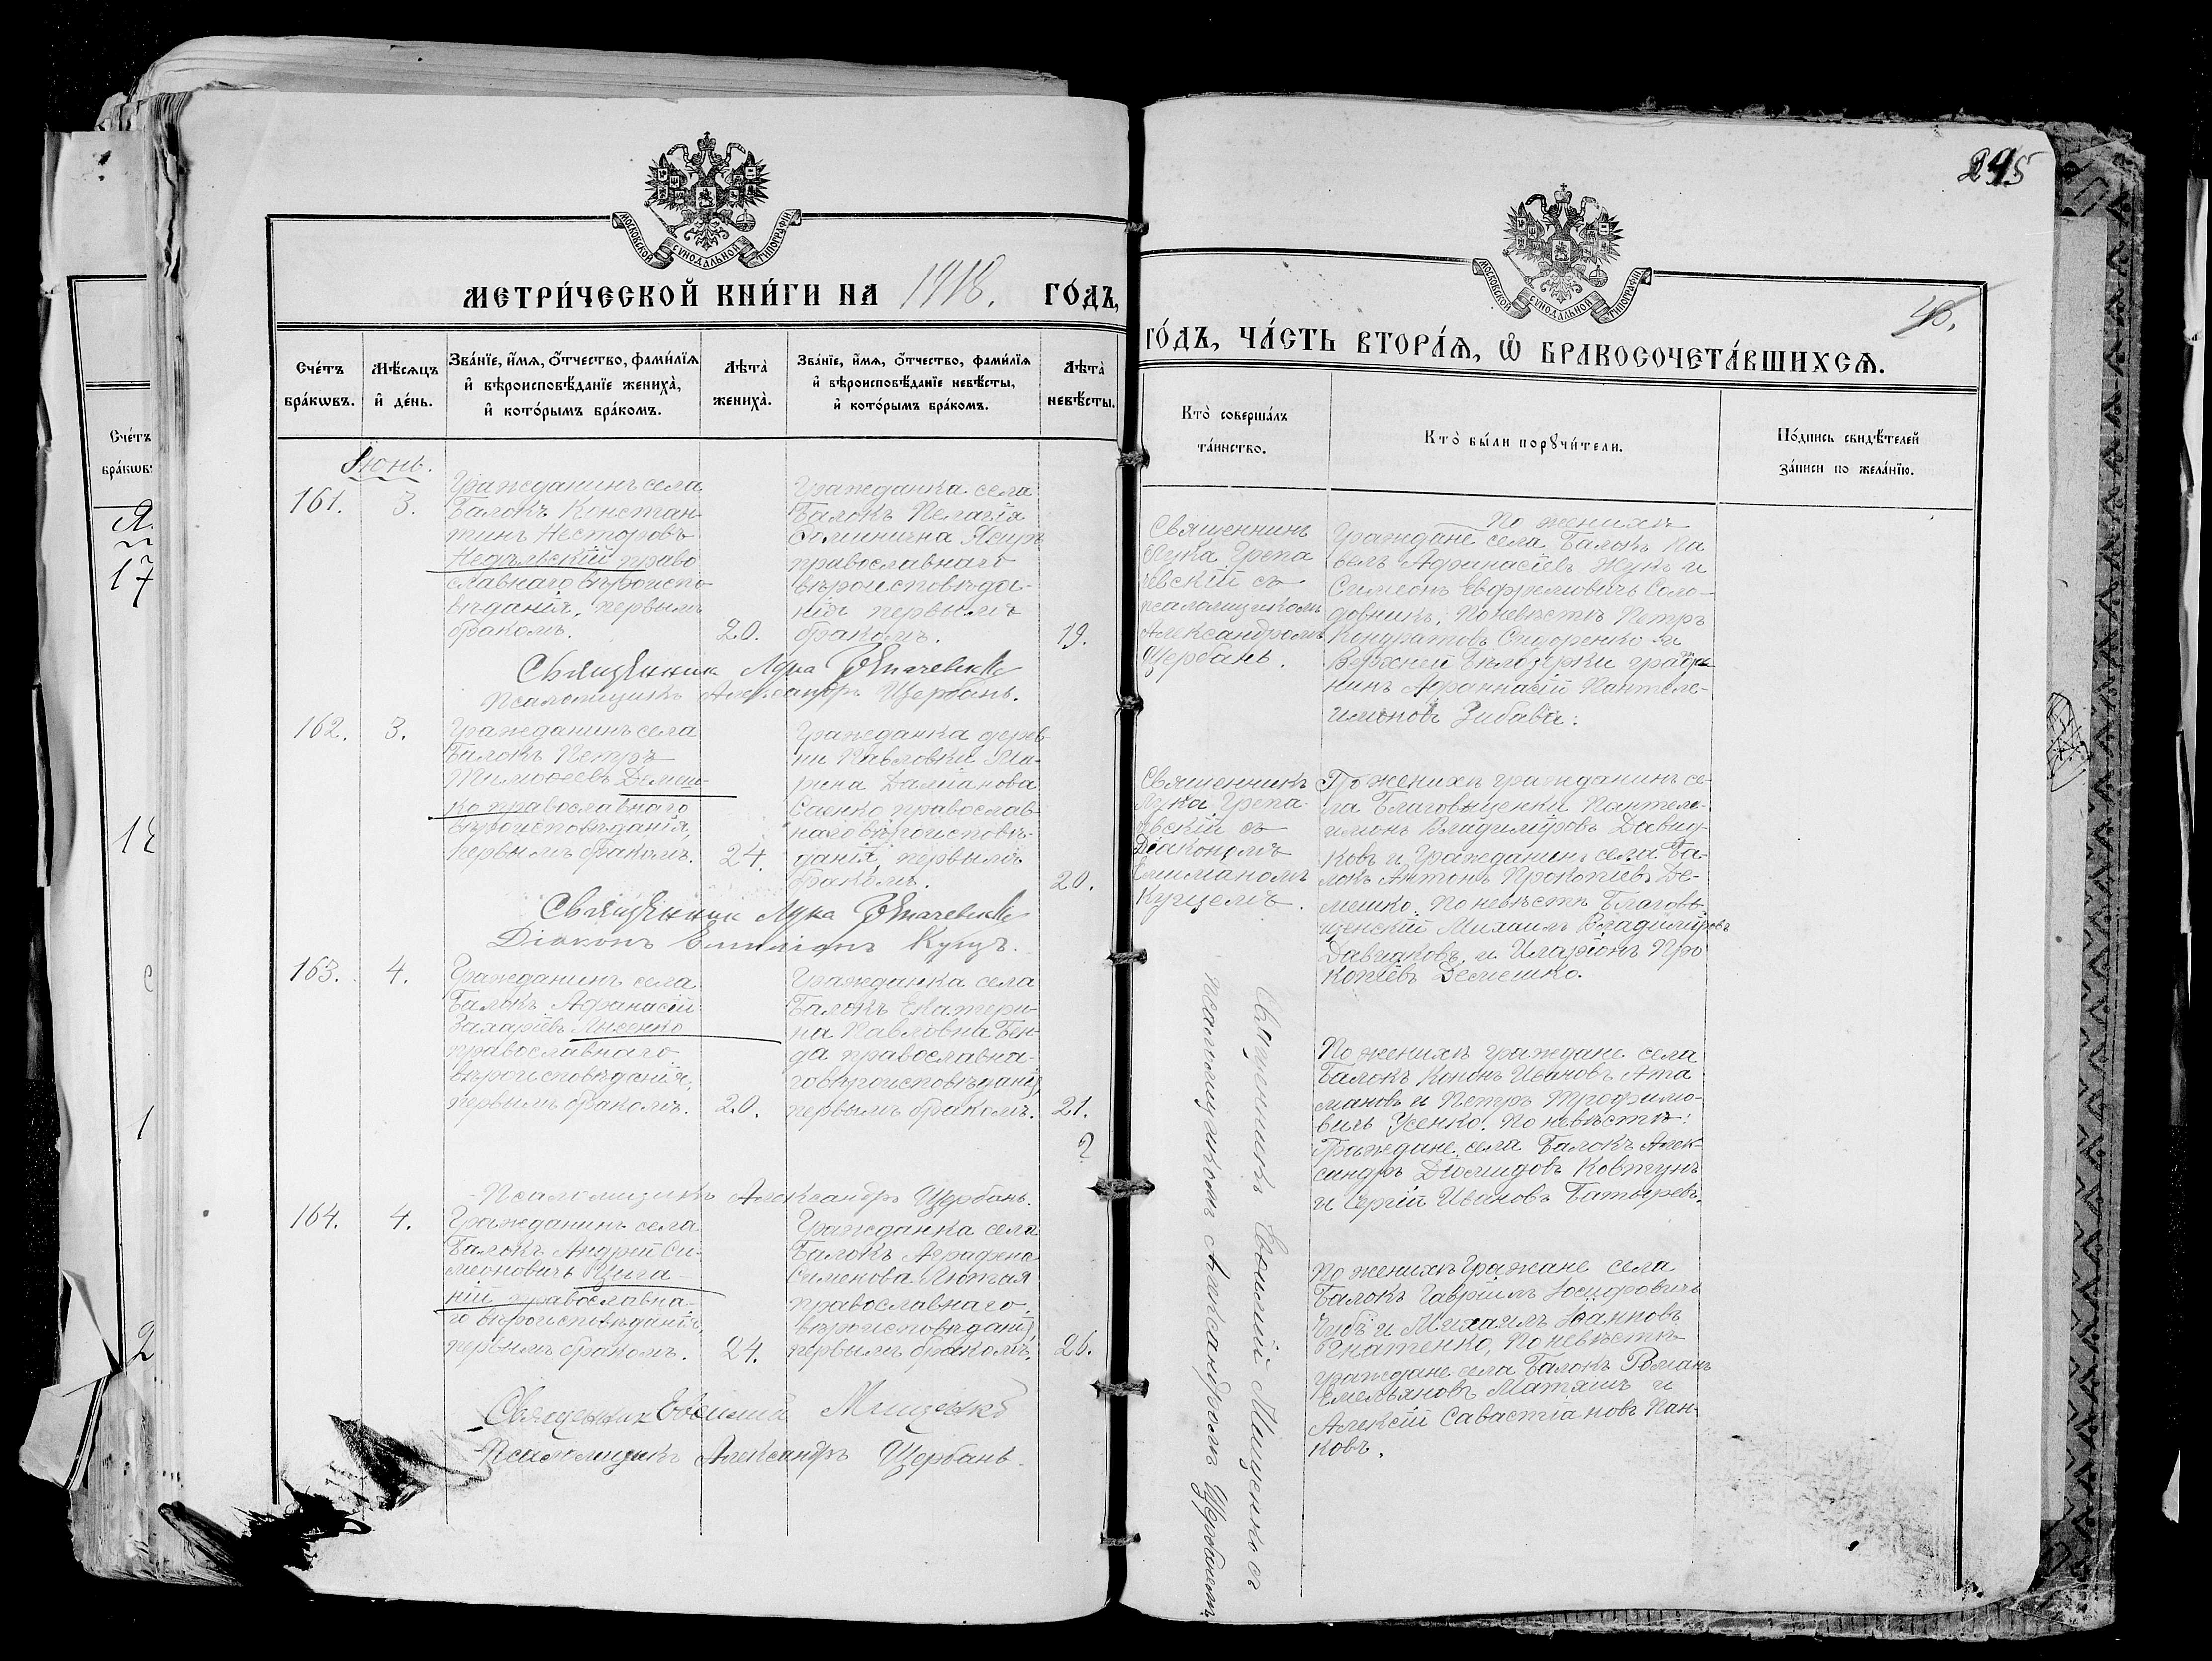 МОСКОВСКОЙ СѴНОДАЛЬНОЙ ТИПОГРАФІИ
МЕТРИ́ЧЕСКОЙ КНИ́ГИ НА 1918. ГО́ДЪ,
Сче́тъ бра́кѡвъ.
Мѣ́сяцъ и҆ де́нь.
Зва́нїе, и҆́мя, ѻ҆́тчество, фами́лїя и҆ вѣроисповѣ́данїе жениха̀, и҆ кото́рымъ бра́комъ.
Лѣ́та жениха̀.
Зва́нїе, и҆́мя, ѻ҆́тчество, фами́лїя и҆ вѣроисповѣ́данїе невѣ́сты, и҆ кото́рымъ бра́комъ.
Лѣ́та невѣ́сты.
Іюнь.
161.
3.
Гражданинъ села
Балокъ Констан-
тинъ Несторовъ
Недѣльскій право
славнаго вѣроиспо-
вѣданія, первымъ
бракомъ.
20.
Гражданка села
Балокъ Пелагія
православнаго
вѣроисповѣда-
нія первымъ
бракомъ.
19.
Священник Лука
Псаломщикъ Александръ Щербань.
162.
3.
Гражданинъ села
Балокъ Петръ
Тимоѳеевъ Демеш-
ко православнаго
вѣроисповѣданія,
первымъ бракомъ.
24.
Гражданка дерев-
ни Павловки Ма-
рина Даміанова
Саенко православ-
наго вѣроисповѣ-
данія, первымъ
бракомъ.
20.
Священник Лука
Діаконъ Емиліанъ Куцъ.
163.
4.
Гражданинъ села
Балокъ Афанасій
Захаріевъ Лысенко
православнаго
вѣроисповѣданія,
первымъ бракомъ.
20.
Гражданка села
Балокъ Екатери-
на Павловна Бен-
да православна-
го вѣроисповѣданія,
первымъ бракомъ.
21.
?
Псаломщикъ Александръ Щербань.
164.
4.
Гражданинъ села
Балокъ Андрей Си-
меоновичъ Цыга
ній православна-
го вѣроисповѣданія,
первымъ бракомъ.
24.
Гражданка села
Балокъ Агрифена
Сименова Лютая
православнаго
вѣроисповѣданія,
первымъ бракомъ.
26.
Священник Евѳимій Мищенко
Псаломщикъ Александръ Щербань
295
40.
МОСКОВСКОЙ СѴНОДАЛЬНОЙ ТИПОГРАФІИ
ГО́ДЪ, ЧА́СТЬ ВТОРА́Ѧ, Ѽ БРАКОСОЧЕТА́ВШИХСѦ.
Кто̀ соверша́лъ та́инство.
Кто̀ бы́ли порꙋчи́тели.
По́дпись свидѣ́телей за́писи по жела́нїю.
Священникъ
Лука Трепа
чевскій съ
псаломщикомъ
Александромъ
Щербань.
По женихѣ
Граждане села Балокъ Па
велъ Афанасіевъ Жукъ и
Симеонъ Евфремовичъ Соло-
довникъ, По невѣстѣ Петръ
Кондратовъ Сидоренко и
Верхней Бѣлозерки гражда
нинъ Афаннасій Пантеле-
имоновъ Забава.
Священникъ
Лука Трепа-
чевскій съ
Діакономъ
Емиліаномъ
Куцемъ.
По женихѣ гражданинъ се-
ла Благовѣщенки Пантеле-
имонъ Владиміровъ Давид-
ковъ и гражданинъ села Ба-
локъ Антонъ Прокопіевъ Де-
мешко. По невѣстѣ Благовѣ-
щенскій Михаилъ Владиміровъ
Давидковъ и Иларіонъ Про
копіевъ Демешко.
Священникъ Евѳимій Мищенко съ
псаломщикомъ Александромъ Щербанемъ
По женихѣ граждане села
Балокъ Кононъ Ивановъ Ата
мановъ и Петръ Трофимо-
вичъ Усенко. По невѣстѣ:
Граждане села Балокъ Алек-
сандръ Діомидовъ Ковтунъ
и Сергій Ивановъ Батыревъ.
По женихѣ Гражане села
Балокъ Гавріилъ Іосифовичъ
Чубъ и Михаилъ Іоанновъ
Игнатенко, По невѣстѣ
граждане села Балокъ Романъ
Емельяновъ Матяшъ и
Алексій Савастіановъ Пан-
ковъ.